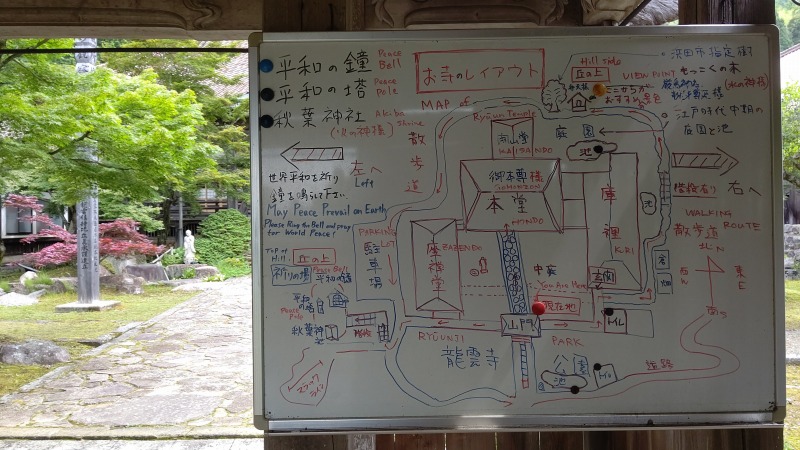 平和の鐘 Peace Bell
平和の塔 Peace Pole
秋葉神社 Akiba Shrine
(火の神様)
お寺のレイアウト
MAP of Ryūun Temple
Hill side
丘の上
VIEW POINT
ここからが
おすすめ景色
浜田市指定樹
もっこくの木
江戸時代中期の
庭園と池
左へ
Left
世界平和を祈り
鐘を鳴らして下さい
May Peace Prevail on Earth
Please Ring the Bell and pray
for World Peace!
散歩道
開山堂
KAISANDO
庭園
池
御本尊様
GOHONZON
本堂
HONDO
庫裡
KURI
池
階段有り
右へ
WALKING
ROUTE
散歩道
北N
東E
南S
PARKING
LOT
駐車場
座禅堂
ZAZENDO
中庭
玄関
You Are Here
現在地
山門
畑
Top of
Hill
丘の上
祈りの場
Peace Bell
平和の鐘
平和の塔
Peace
Pole
秋葉神社
階段
スラックライン
RYŪUNJI
龍雲寺
PARK
公園
池
道路